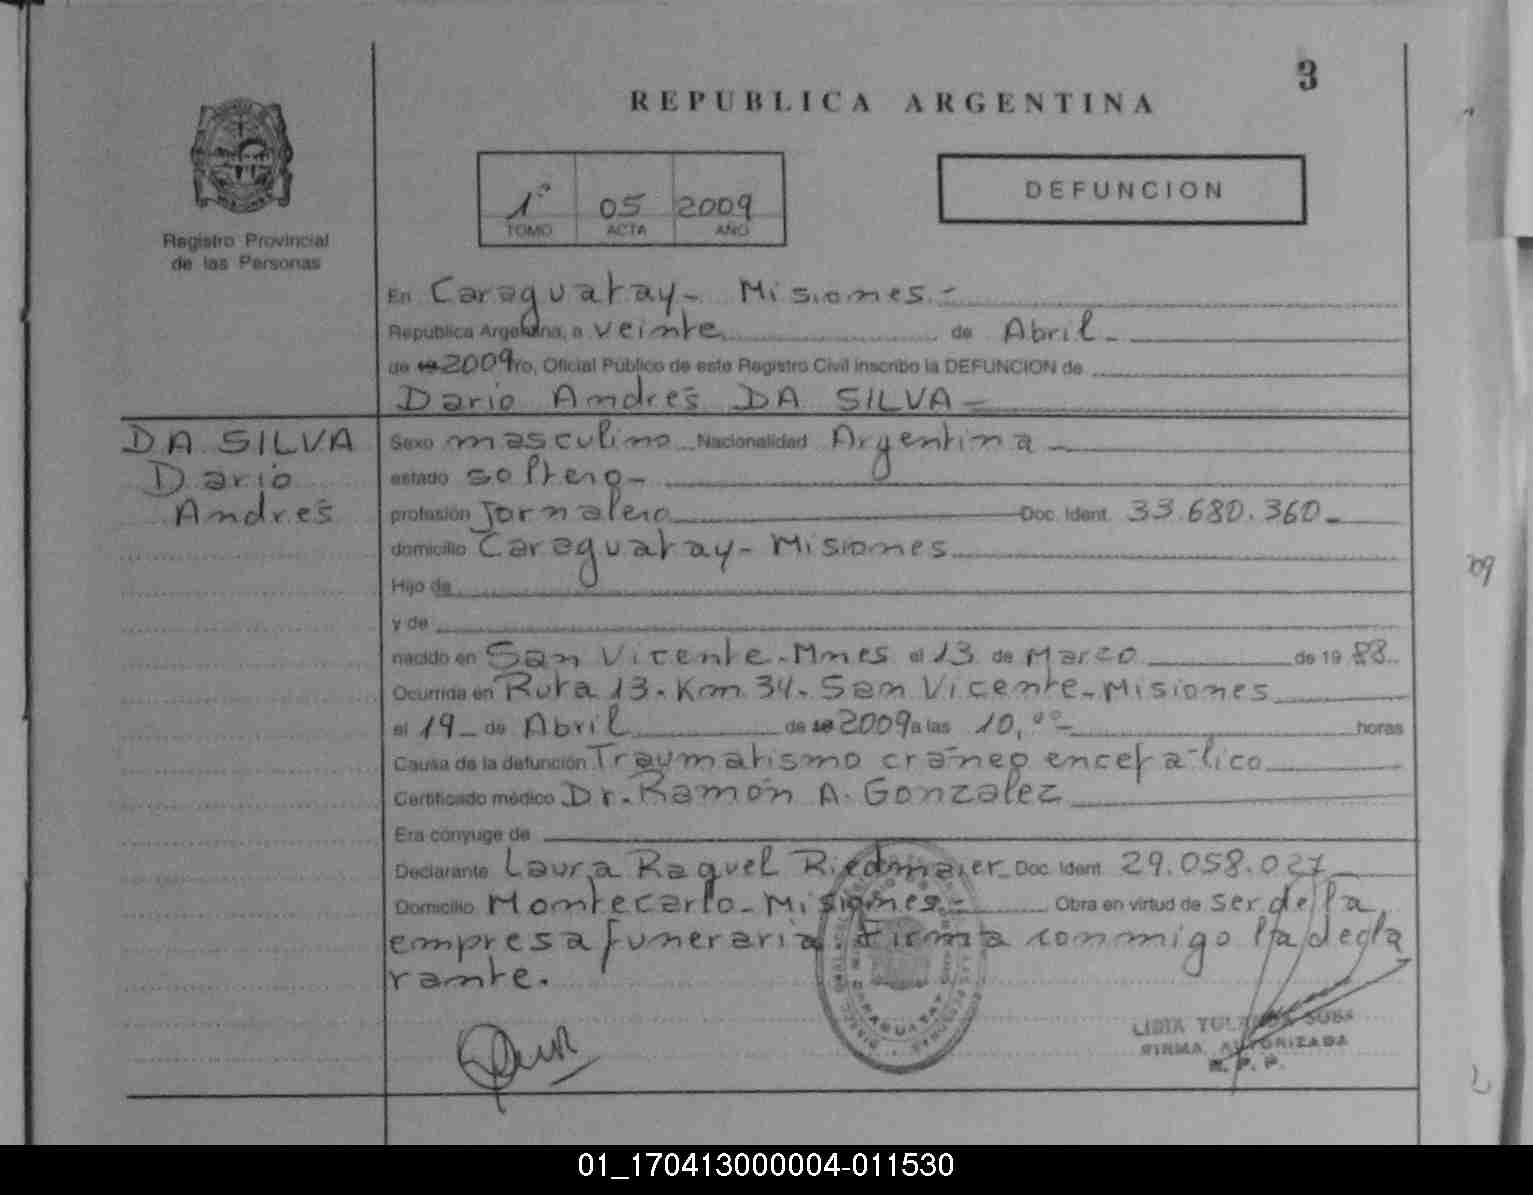 3
REPUBLICA ARGENTINA
1º 05 2009
TOMO ACTA AÑO
DEFUNCION
Registro Provincial
de las Personas
En Caraguatay - Misiones.-
Republica Argentina, a veinte de Abril.
de 19 2009 Yo, Oficial Público de este Registro Civil inscribo la DEFUNCION de
Dario Andrés DA SILVA -
DA SILVA
Dario
Andres
Sexo masculino Nacionalidad Argentina
estado soltero -
profesión Jornalero Doc. Ident. 33.680.360 -
domicilio Caraguatay - Misiones
Hijo de
y de
nacido en San Vicente - Mnes el 13 de Marzo de 19 88
Ocurrida en Ruta 13 - Km 34 - San Vicente - Misiones
el 19 - de Abril de 19 2009 a las 10,ºº - horas
Causa de la defunción Traumatismo cráneo encefálico
Certificado médico Dr. Ramón A. Gonzalez
Era cónyuge de
Declarante Laura Raquel Riedmaier Doc. Ident. 29.058.027
Domicilio Montecarlo - Misiones - Obra en virtud de ser de la
empresa funeraria firma conmigo la decla
rante.
CARAGUATAY
FIRMA AUTORIZADA
R. P. P.
01_170413000004-011530